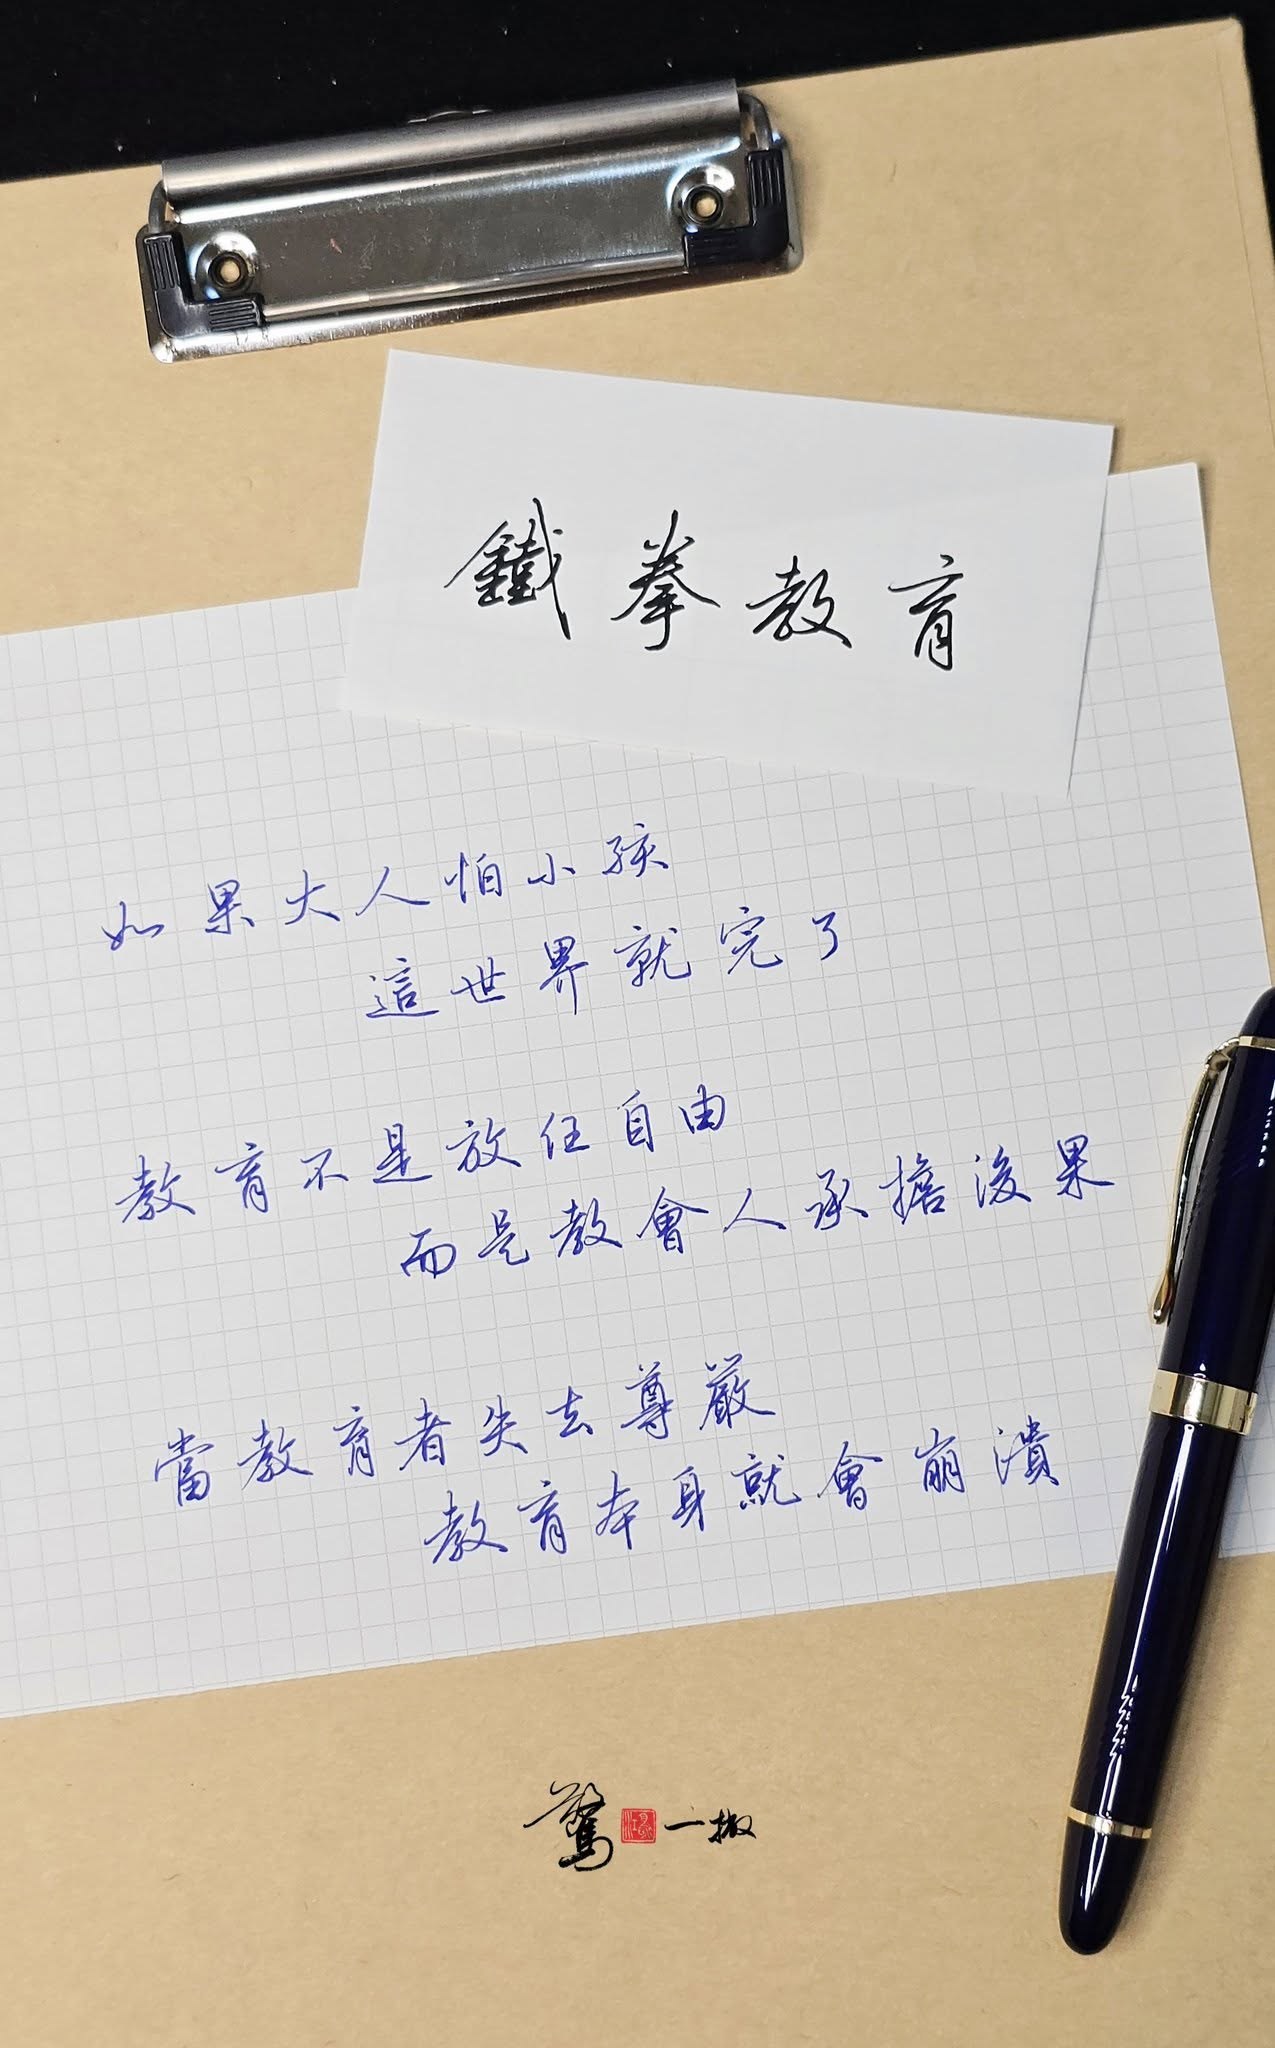 鐵拳教育
如果大人怕小孩
這世界就完了
教育不是放任自由
而是教會人承擔後果
當教育者失去尊嚴
教育本身就會崩潰
一撇